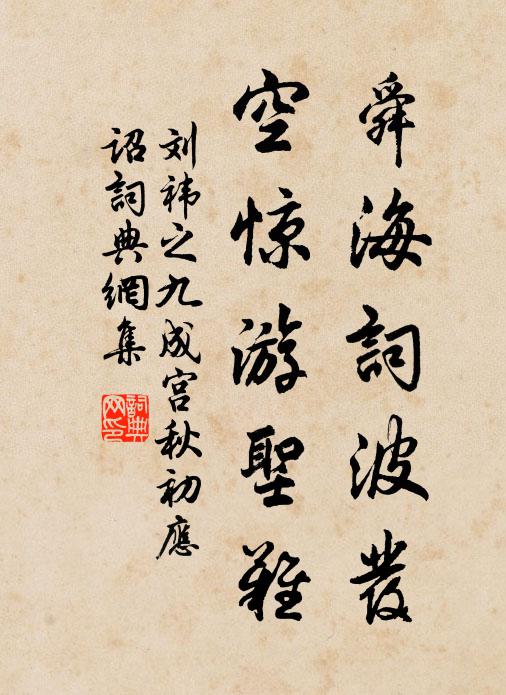 舜海詞波發
空惊游聖難
刘祎之九成宫秋初應
诏詞典網集
詞典
网印